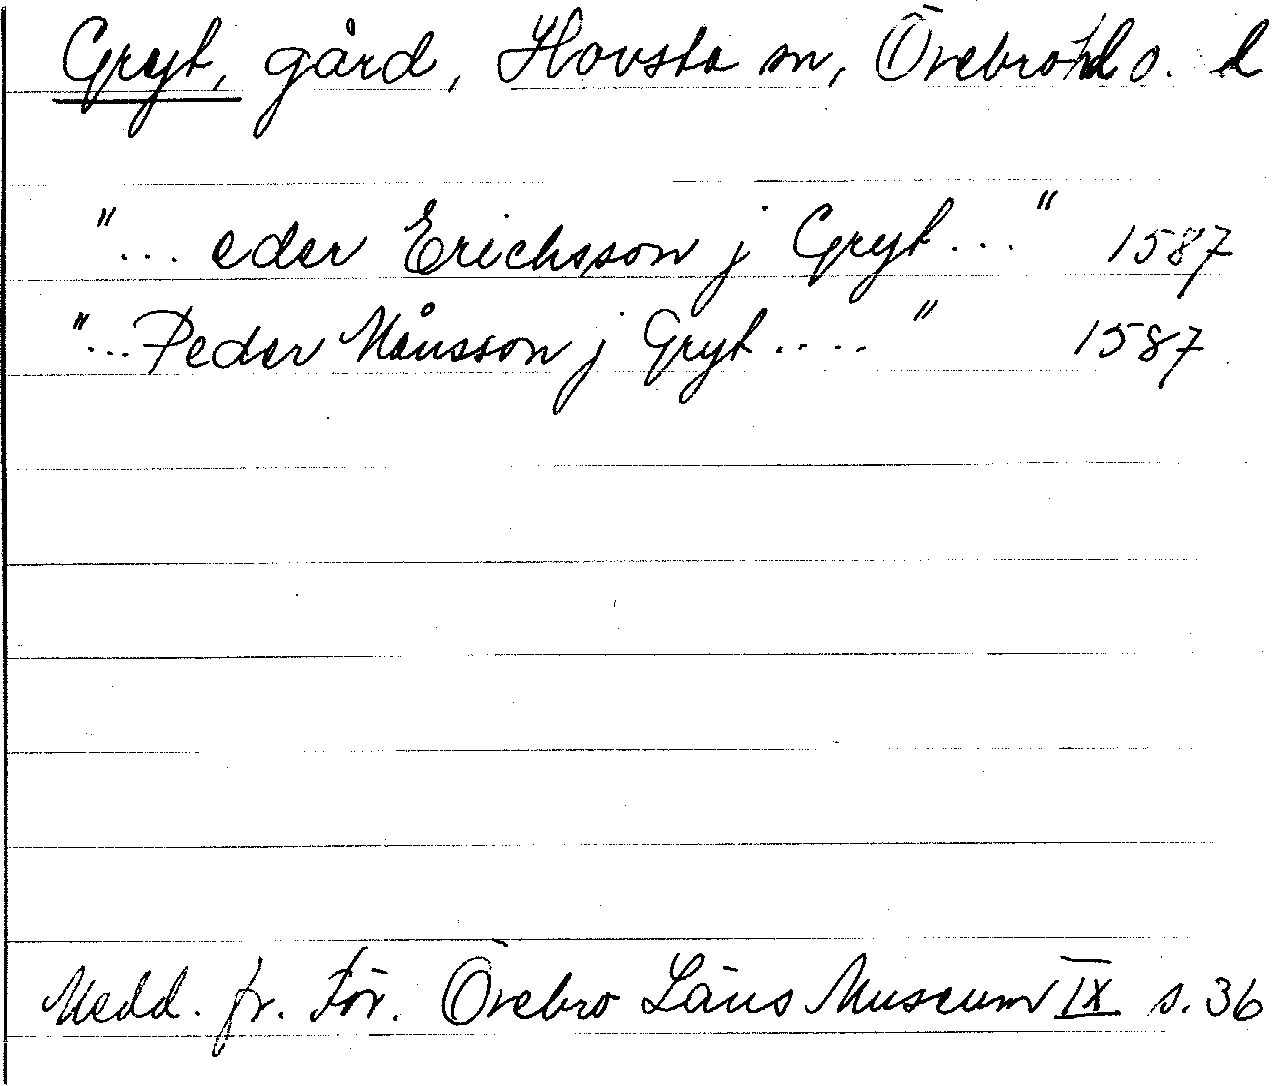 Gryt, gård, Hovsta sn, Örebro hd o. d
"... eder Erichsson j Gryt..." 1587
"...Peder Månsson j Gryt...." 1587
Medd. fr. För. Örebro Läns Museum IX s. 36